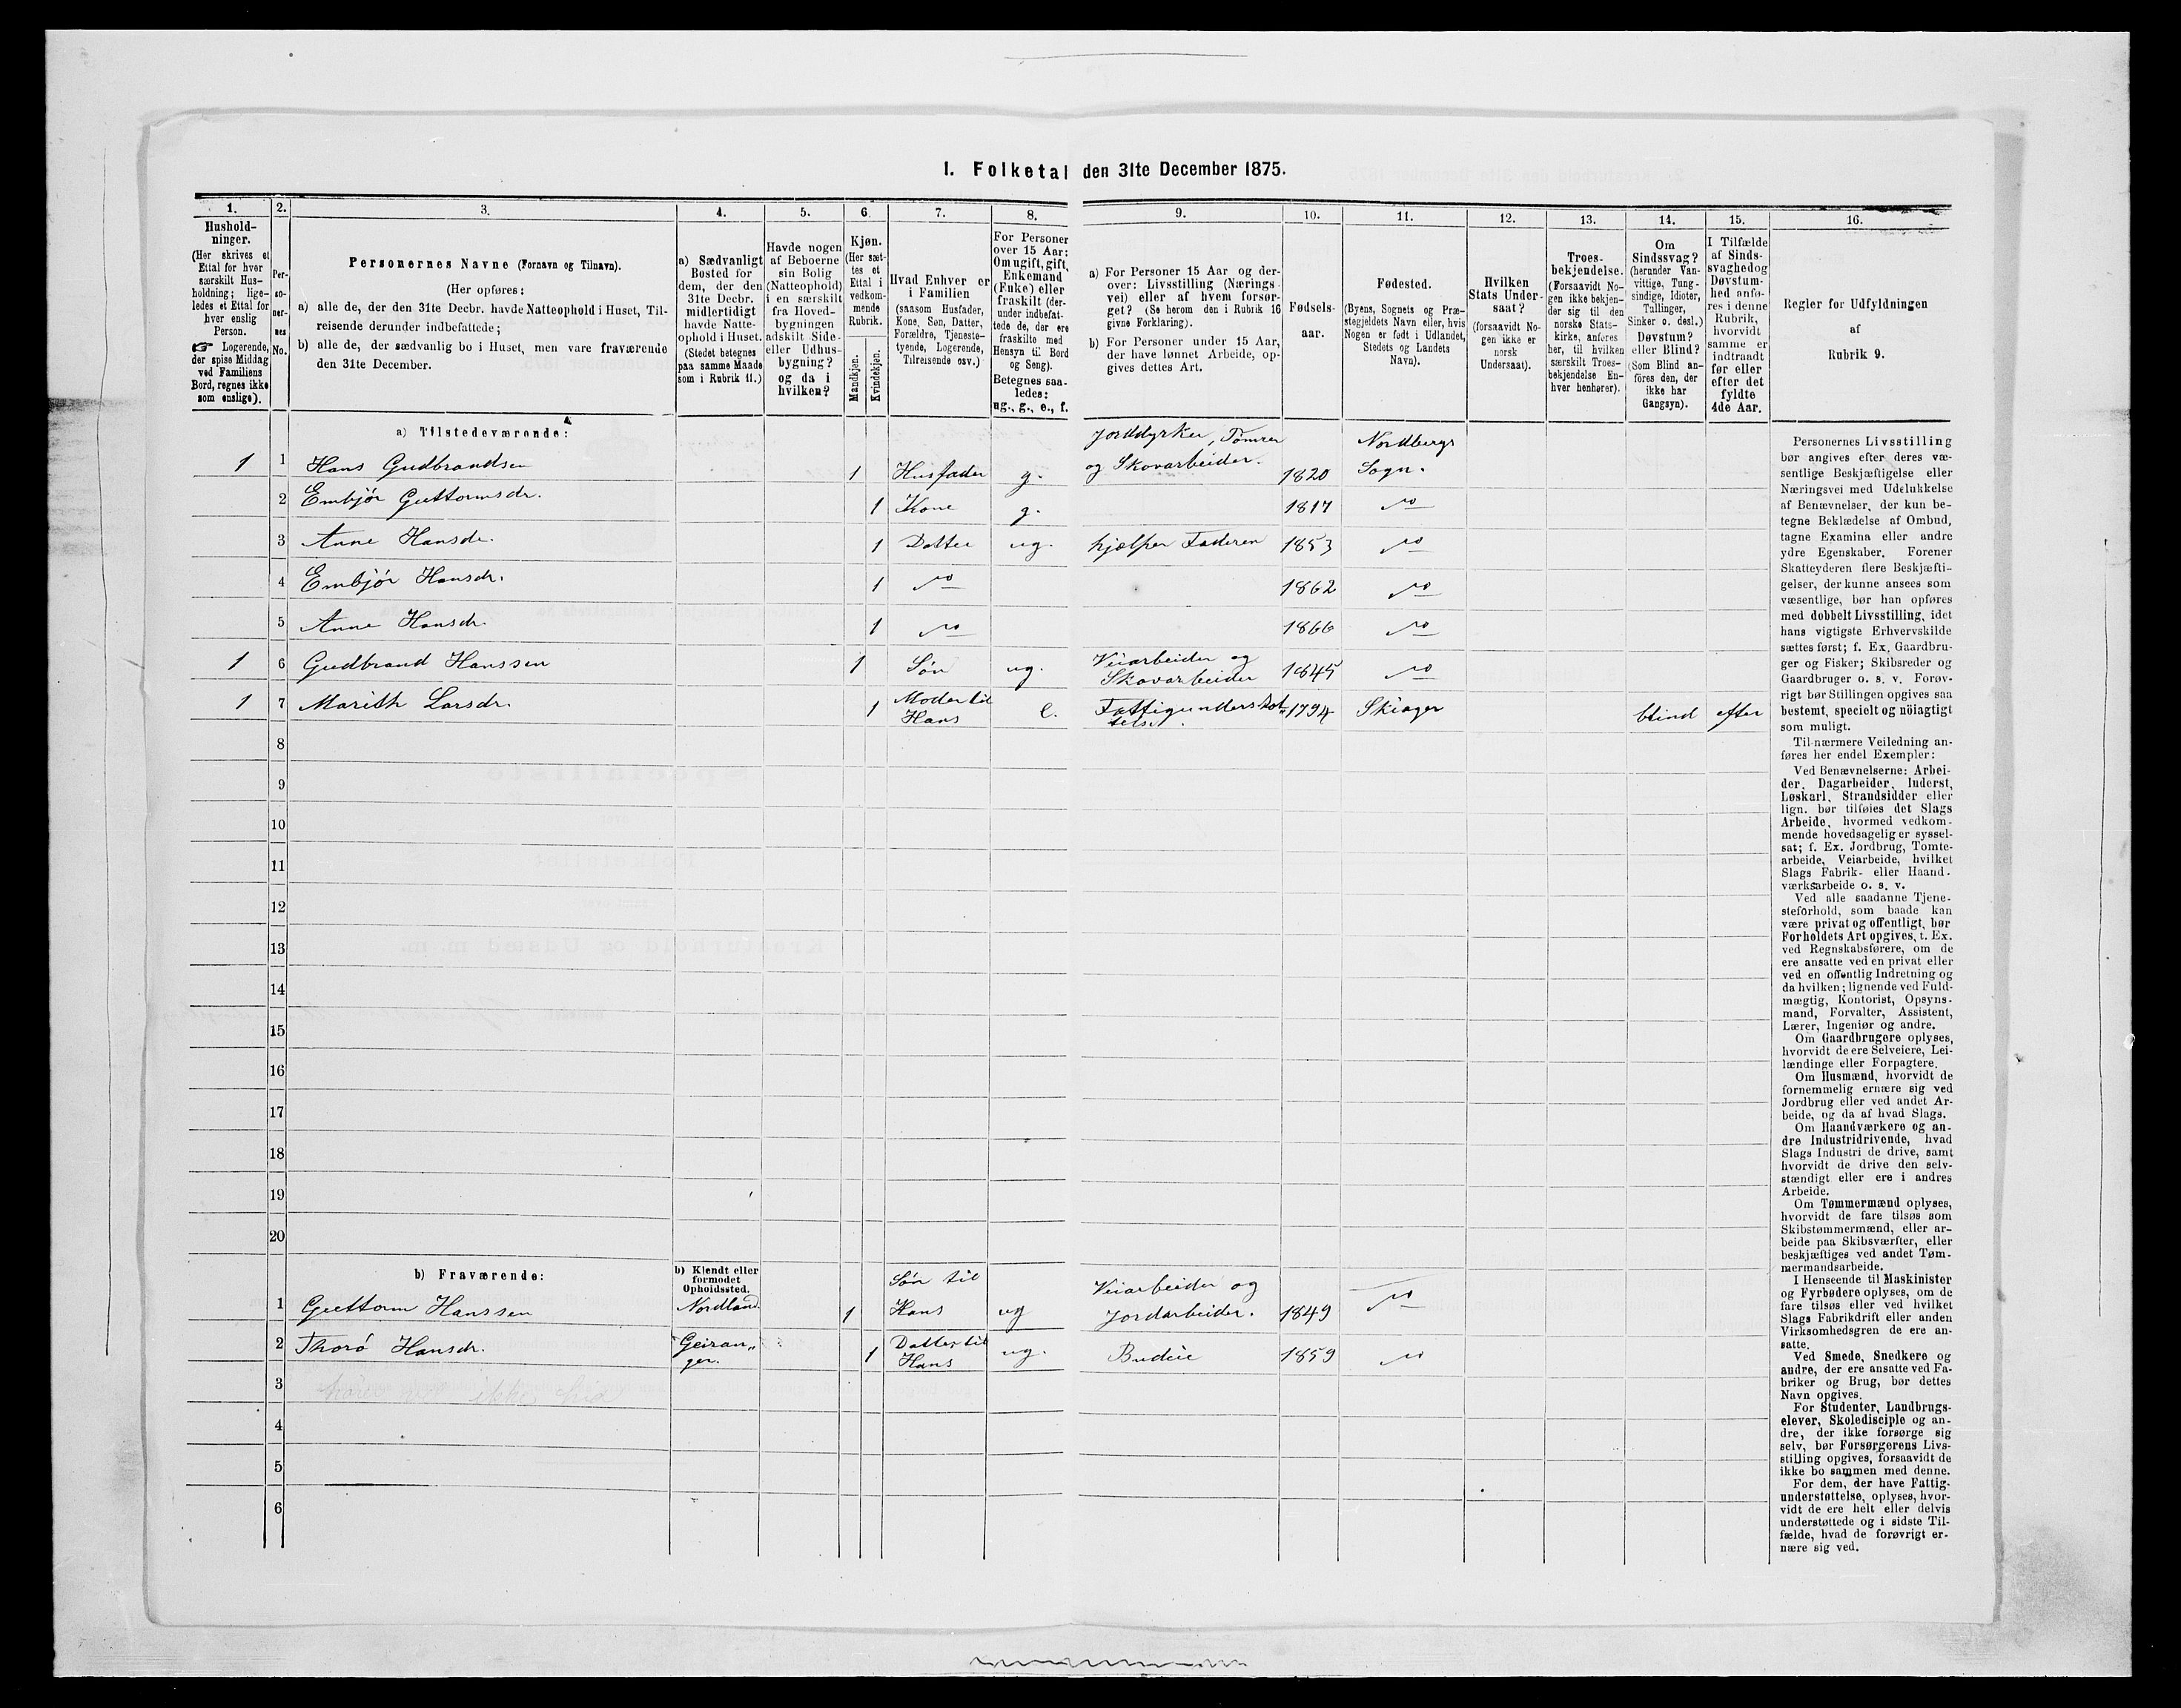 1. Folketal den 31te December 1875.
1. 2. 3. 4. 5. 6. 7. 8. 9. 10. 11. 12. 13. 14. 15. 16.
Hushold-
ninger.
(Her skrives et
Ettal for hver
særskilt Hus-
holdning; lige-
ledes et Ettal for
hver enslig
Person.
☞ Logerende,
der spise Middag
ved Familiens
Bord, regnes ikke
som enslige).
Per-
so-
ner-
nes
No.
Personernes Navne (Fornavn og Tilnavn).
(Her opføres:
a) alle de, der den 31te Decbr. havde Natteophold i Huset, Til-
reisende derunder indbefattede;
b) alle de, der sædvanlig bo i Huset, men vare fraværende
den 31te December.
a) Sædvanligt
Bosted for
dem, der den
31te Decbr.
midlertidigt
havde Natte-
ophold i Huset.
(Stedet betegnes
paa samme Maade
som i Rubrik 11.)
Havde nogen
af Beboerne
sin Bolig
(Natteophold)
i en særskilt
fra Hoved-
bygningen
adskilt Side-
eller Udhus-
bygning?
og da i
hvilken?
Kjøn.
(Her sæt-
tes et
Ettal i
vedkom-
mende
Rubrik.
Mandkjøn.
Kvindekjøn.
Hvad Enhver er
i Familien
(saasom Husfader,
Kone, Søn, Datter,
Forældre, Tjeneste-
tyende, Logerende,
Tilreisende osv.)
For Personer
over 15 Aar:
Om ugift, gift,
Enkemand
(Enke) eller
fraskilt (der-
under indbefat-
tede de, der ere
fraskilte med
Hensyn til Bord
og Seng).
Betegnes saa-
ledes:
ug., g., e., f.
a) For Personer 15 Aar og der-
over: Livsstilling (Nærings-
vei) eller af hvem forsør-
get? (Se herom den i Rubrik 16
givne Forklaring).
b) For Personer under 15 Aar,
der have lønnet Arbeide, op-
gives dettes Art.
Fødsels-
aar.
Fødested.
(Byens, Sognets og Præ-
stegjeldets Navn eller, hvis
Nogen er født i Udlandet,
Stedets og Landets
Navn).
Hvilken
Stats Under-
saat?
(forsaavidt No-
gen ikke er
norsk
Undersaat).
Troes-
bekjendelse.
(Forsaavidt No-
gen ikke bekjen-
der sig til den
norske Stats-
kirke, anføres
her, til hvilken
særskilt Troes-
bekjendelse En-
hver henhører).
Om
Sindssvag?
(herunder Van-
vittige, Tung-
sindige, Idioter,
Tullinger,
Sinker o. desl.)
Døvstum?
eller Blind?
(Som Blind an-
føres den, der
ikke har
Gangsyn).
I Tilfælde
af Sinds-
svaghed og
Døvstum-
hed anfø-
res i denne
Rubrik,
hvorvidt
samme er
indtraadt
før eller
efter det
fyldte
4de Aar.
Regler for Udfyldningen
af
Rubrik 9.
a) Tilstedeværende:
1 1 Hans Gudbrandsen 1 Husfader g. Jorddyrker, Tømrer og Skovarbeider. 1820 Nordbergs Sogn.
2 Embjør Guttormsdr. 1 Kone g. 1817 do
3 Anne Hansdr. 1 Datter ug. hjælper Faderen 1853 do
4 Embjør Hansdr. 1 do 1862 do
5 Anne Hansdr. 1 do 1866 do
1 6 Gudbrand Hanssen 1 Søn ug. Veiarbeider og Skovarbeider 1845 do
1 7 Marith Larsdr. 1 Moder til Hans e. Fattigunderstøt-telse. 1794 Skiager blind efter
8
9
10
11
12
13
14
15
16
17
18
19
20
b) Fraværende:
b) Kjendt eller
formodet
Opholdssted.
1 Guttorm Hanssen Nordland. 1 Søn til Hans ug Veiarbeider og Jordarbeider. 1849 do
2 Thorø Hansdr. Geiran„ ger. 1 Datter til Hans ug. Budeie 1859 do
3
4
5
6
Personernes Livsstilling
bør angives efter deres væ-
sentlige Beskjæftigelse eller
Næringsvei med Udelukkelse
af Benævnelser, der kun be-
tegne Beklædelse af Ombud,
tagne Examina eller andre
ydre Egenskaber. Forener
Skatteyderen flere Beskjæfti-
gelser, der kunne ansees som
væsentlige, bør han opføres
med dobbelt Livsstilling, idet
hans vigtigste Erhvervskilde
sættes først; f. Ex. Gaardbru-
ger og Fisker; Skibsreder og
Gaardbruger o. s. v. Forøv-
rigt bør Stillingen opgives saa
bestemt, specielt og nöiagtigt
som muligt.
Til nærmere Veiledning an-
føres her endel Exempler:
Ved Benævnelserne: Arbei-
der, Dagarbeider, Inderst,
Løskarl, Strandsidder eller
lign. bør tilføies det Slags
Arbeide, hvormed vedkom-
mende hovedsagelig er syssel-
sat; f. Ex. Jordbrug, Tomte-
arbeide, Veiarbeide, hvilket
Slags Fabrik- eller Haand-
værksarbeide o. s. v.
Ved alle saadanne Tjene-
steforhold, som baade kan
være privat og offentligt, bør
Forholdets Art opgives, t. Ex.
ved Regnskabsførere, om de
ere ansatte ved en privat eller
ved en offentlig Indretning og
da hvilken; lignende ved Fuld-
mægtig, Kontorist, Opsyns-
mand, Forvalter, Assistent,
Lærer, Ingeniør og andre.
Om Gaardbrugere oplyses,
hvorvidt de ere Selveiere, Lei-
lændinge eller Forpagtere.
Om Husmænd, hvorvidt de
fornemmelig ernære sig ved
Jordbrug eller ved andet Ar-
beide, og da af hvad Slags.
Om Haandværkere og an-
dre Industridrivende, hvad
Slags Industri de drive, samt
hvorvidt de drive den selv-
stændigt eller ere i andres
Arbeide.
Om Tømmermænd oplyses,
hvorvidt de fare tilsøs som
Skibstømmermænd, eller ar-
beide paa Skibsværfter, eller
beskjæftiges ved andet Tøm-
mermandsarbeide.
I Henseende til Maskinister
og Fyrbødere oplyses, om de
fare tilsøs eller ved hvilket
Slags Fabrikdrift eller anden
Virksomhedsgren de ere an-
satte.
Ved Smede, Snedkere og
andre, der ere ansatte ved Fa-
briker og Brug, bør dettes
Navn opgives.
For Studenter, Landbrugs-
elever, Skoledisciple og an-
dre, der ikke forsørge sig
selv, bør Forsørgerens Livs-
stilling opgives, forsaavidt de
ikke bo sammen med denne.
For dem, der have Fattig-
understøttelse, oplyses, hvor-
vidt de ere helt eller delvis
understøttede og i sidste Til-
fælde, hvad de forøvrigt er-
nære sig ved.